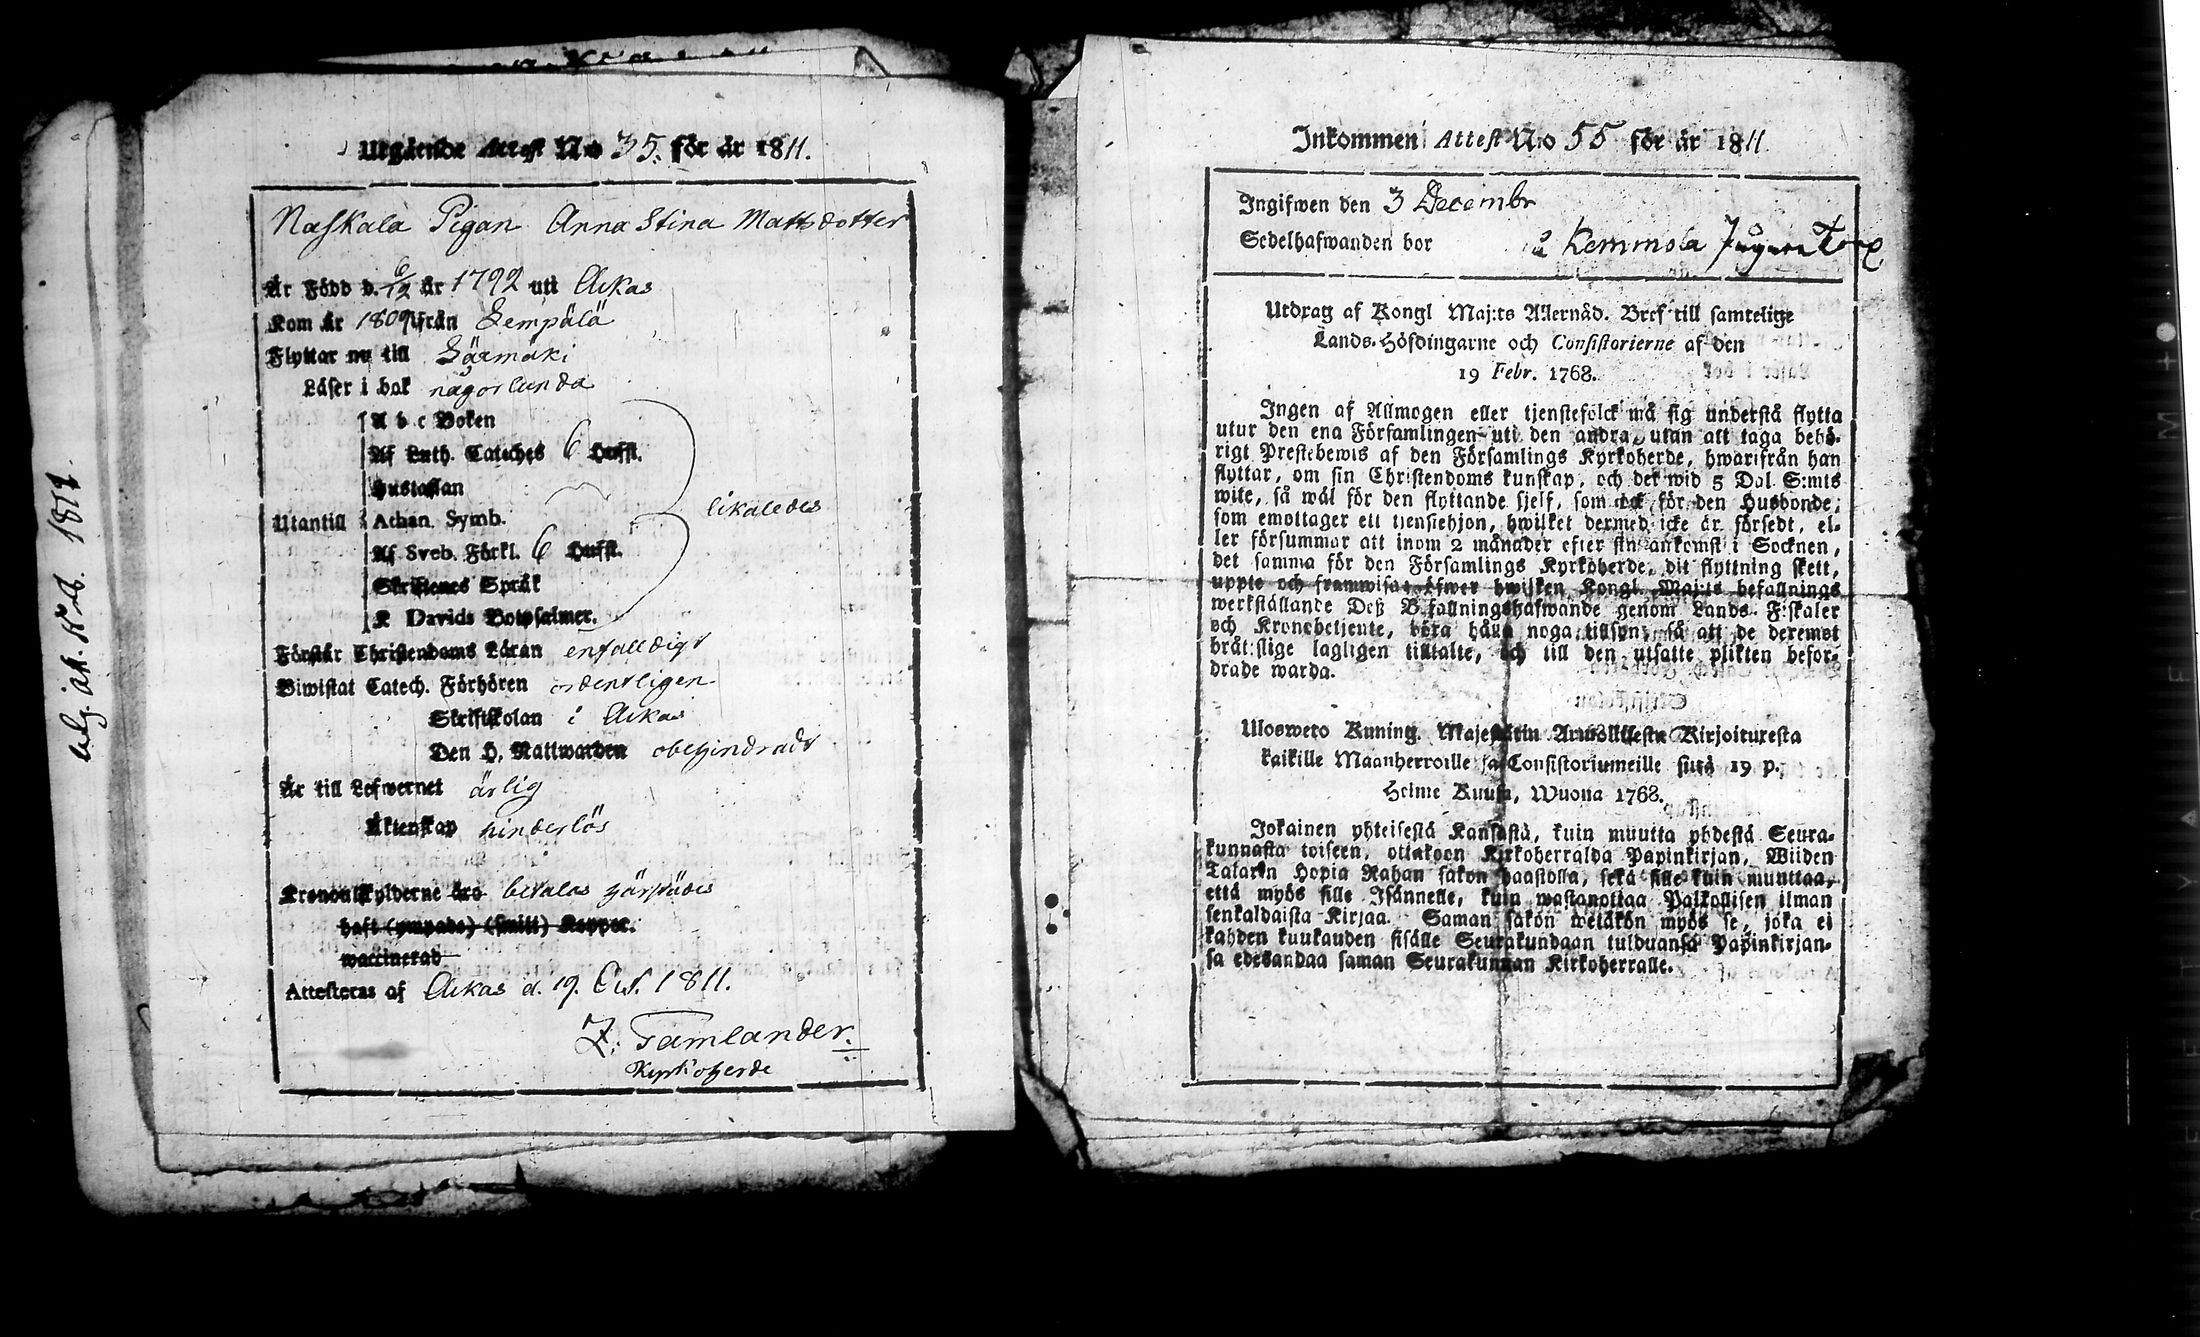 Utgående Attest No 35. för år 1811.
Naskala Pigan Anna Stina Mattsdotter
Är Född d. 6/12 år 1792 uti Akas
Kom år 1809 ifrån Lempälä
Flyttar nu till Särmäki
Läser i bok någorlunda
A b c Boken
Af Luth. Cateches 6 Hufst.
Hustaflan
Utantill Athan. Symb. likaledes
Af Sveb. Förkl. 6 Hufst.
Skriftenes Språk
K Davids Botpsalmer.
Förstår Christendoms Läran enfalldigt
Biwistat Catech. Förhören ordentligen
Skriftskolan i Akas
Den H. Nattwarden obehindradt
Är till Lefwernet ärlig
Äktenskap hinderlös
Kronoutskylderne äro betalas härstädes
haft (ympade) (smitt) Koppor.
waccinerad
Attesteras af Akas d. 19. Oct. 1811.
Z. Tamlander.
Kyrkoherde
1811.
Inkommen Attest No 55 för år 1811.
Ingifwen den 3 Decembr
Sedelhafwanden bor Kemmola
Utdrag af Kongl Maj:ts Allernåd. Bref till samtelige
Lands-Höfdingarne och Consistorierne af den
19 Febr. 1768.
Ingen af Allmogen eller tjenstefolck må sig understå flytta
utur den ena Församlingen uti den andra, utan att taga behö-
rigt Prestebewis af den Församlings Kyrkoherde, hwarifrån han
flyttar, om sin Christendoms kunskap, och det wid 5 Dal. S:mts
wite, så wäl för den flyttande sjelf, som ock för den Husbonde,
som emottager ett tjenstehjon, hwilket dermed icke är försedt, el-
ler försummar att inom 2 månader efter sin ankomst i Socknen,
det samma för den Församlings Kyrkoherde, dit flyttning skett,
uppte och framwisa; öfwer hwilken Kongl. Maj:ts befallnings
werkställande Deß Befallningshafwande genom Lands-Fiskaler
och Kronobetjente, böra hålla noga tillsyn, så att de deremot
bråtslige lagligen tilltalte, och till den utsatte plikten befor-
drade warda.
Ulosweto Kuning. Majestetin Armollisesta Kirjoituxesta
kaikille Maanherroille ja Consistoriumeille siitä 19 p.
Helme Kuusa, Wuona 1768.
Jokainen yhteisestä Kansasta, kuin muutta yhdestä Seura-
kunnasta toiseen, ottakoon Kirkoherralda Papinkirjan, Wiiden
Talarin Hopia Rahan sakon haastolla, sekä sille kuin muuttaa,
että myös sille Isännelle, kuin wastanottaa Palkollisen ilman
senkaldaista Kirjaa. Saman sakon wetäkön myös se, joka ei
kahden kuukauden sisälle Seurakundaan tulduansa Papinkirjan-
sa edesandaa saman Seurakunnan Kirkoherralle.